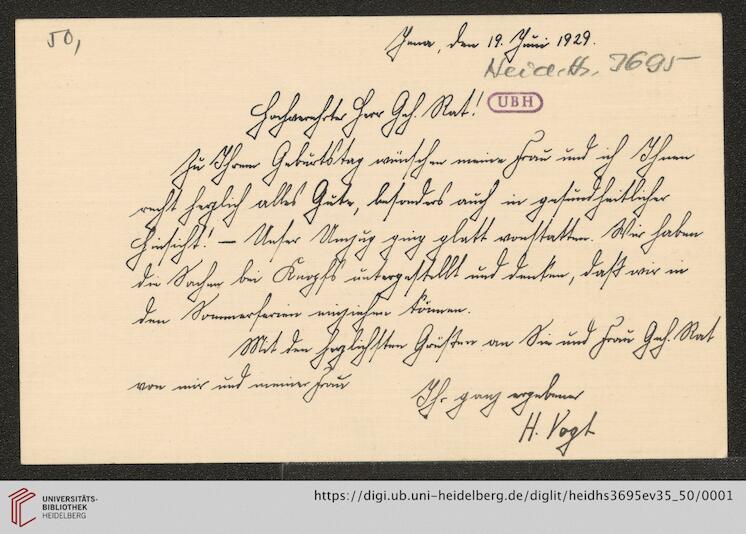 50,
Jena, den 19. Juni 1929.
Heid. Hs. 3695
Hochverehrter Herr Geh. Rat!
UBH
Zu Ihrem Geburtstag wünschen meine Frau und ich Ihnen
recht herzlich alles Gute, besonders auch in gesundheitlicher
Hinsicht! — Unser Umzug ging glatt vonstatten. Wir haben
die Sachen bei Knopfs untergestellt und denken, daß wir in
den Sommerferien einziehen können.
Mit den herzlichsten Grüßen an Sie und Frau Geh. Rat
von mir und meiner Frau
Ihr ganz ergebener
H. Vogt
UNIVERSITÄTS-
BIBLIOTHEK
HEIDELBERG
https://digi.ub.uni-heidelberg.de/diglit/heidhs3695ev35_50/0001